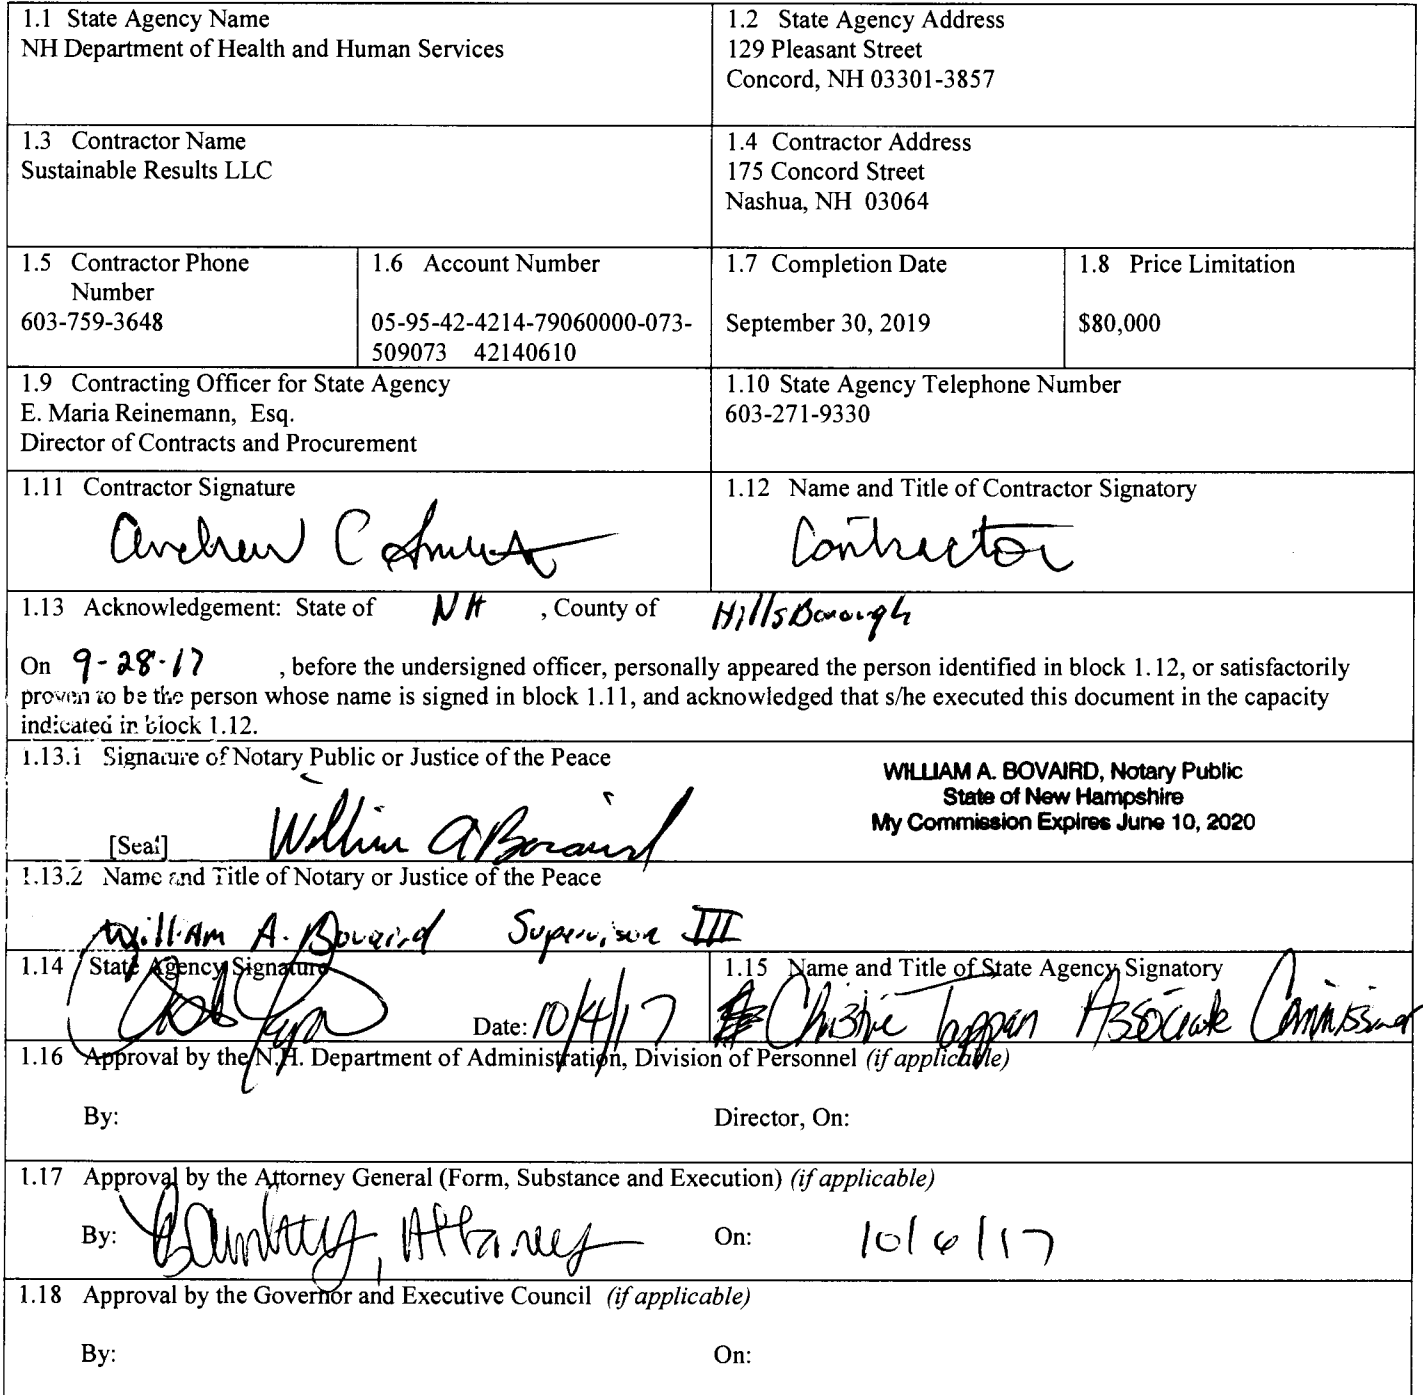 1.1 State Agency Name
NH Department of Health and Human Services
1.2 State Agency Address
129 Pleasant Street
Concord, NH 03301-3857
1.3 Contractor Name
Sustainable Results LLC
1.4 Contractor Address
175 Concord Street
Nashua, NH 03064
1.5 Contractor Phone
Number
603-759-3648
1.6 Account Number
05-95-42-4214-79060000-073-
509073 42140610
1.7 Completion Date
September 30, 2019
1.8 Price Limitation
$80,000
1.9 Contracting Officer for State Agency
E. Maria Reinemann, Esq.
Director of Contracts and Procurement
1.10 State Agency Telephone Number
603-271-9330
1.11 Contractor Signature
Andrew C
1.12 Name and Title of Contractor Signatory
Contractor
1.13 Acknowledgement: State of NH , County of HillsBorough
On 9-28-17 , before the undersigned officer, personally appeared the person identified in block 1.12, or satisfactorily
proven to be the person whose name is signed in block 1.11, and acknowledged that s/he executed this document in the capacity
indicated in block 1.12.
1.13.1 Signature of Notary Public or Justice of the Peace
WILLIAM A. BOVAIRD, Notary Public
State of New Hampshire
My Commission Expires June 10, 2020
[Seal] William A Bovaird
1.13.2 Name and Title of Notary or Justice of the Peace
William A. Bovaird Supervisor III
1.14 State Agency Signature
Date: 10/4/17
1.15 Name and Title of State Agency Signatory
Christie Tappan Associate Commissioner
1.16 Approval by the N.H. Department of Administration, Division of Personnel (if applicable)
By: Director, On:
1.17 Approval by the Attorney General (Form, Substance and Execution) (if applicable)
By: , Attorney On: 10/6/17
1.18 Approval by the Governor and Executive Council (if applicable)
By: On: